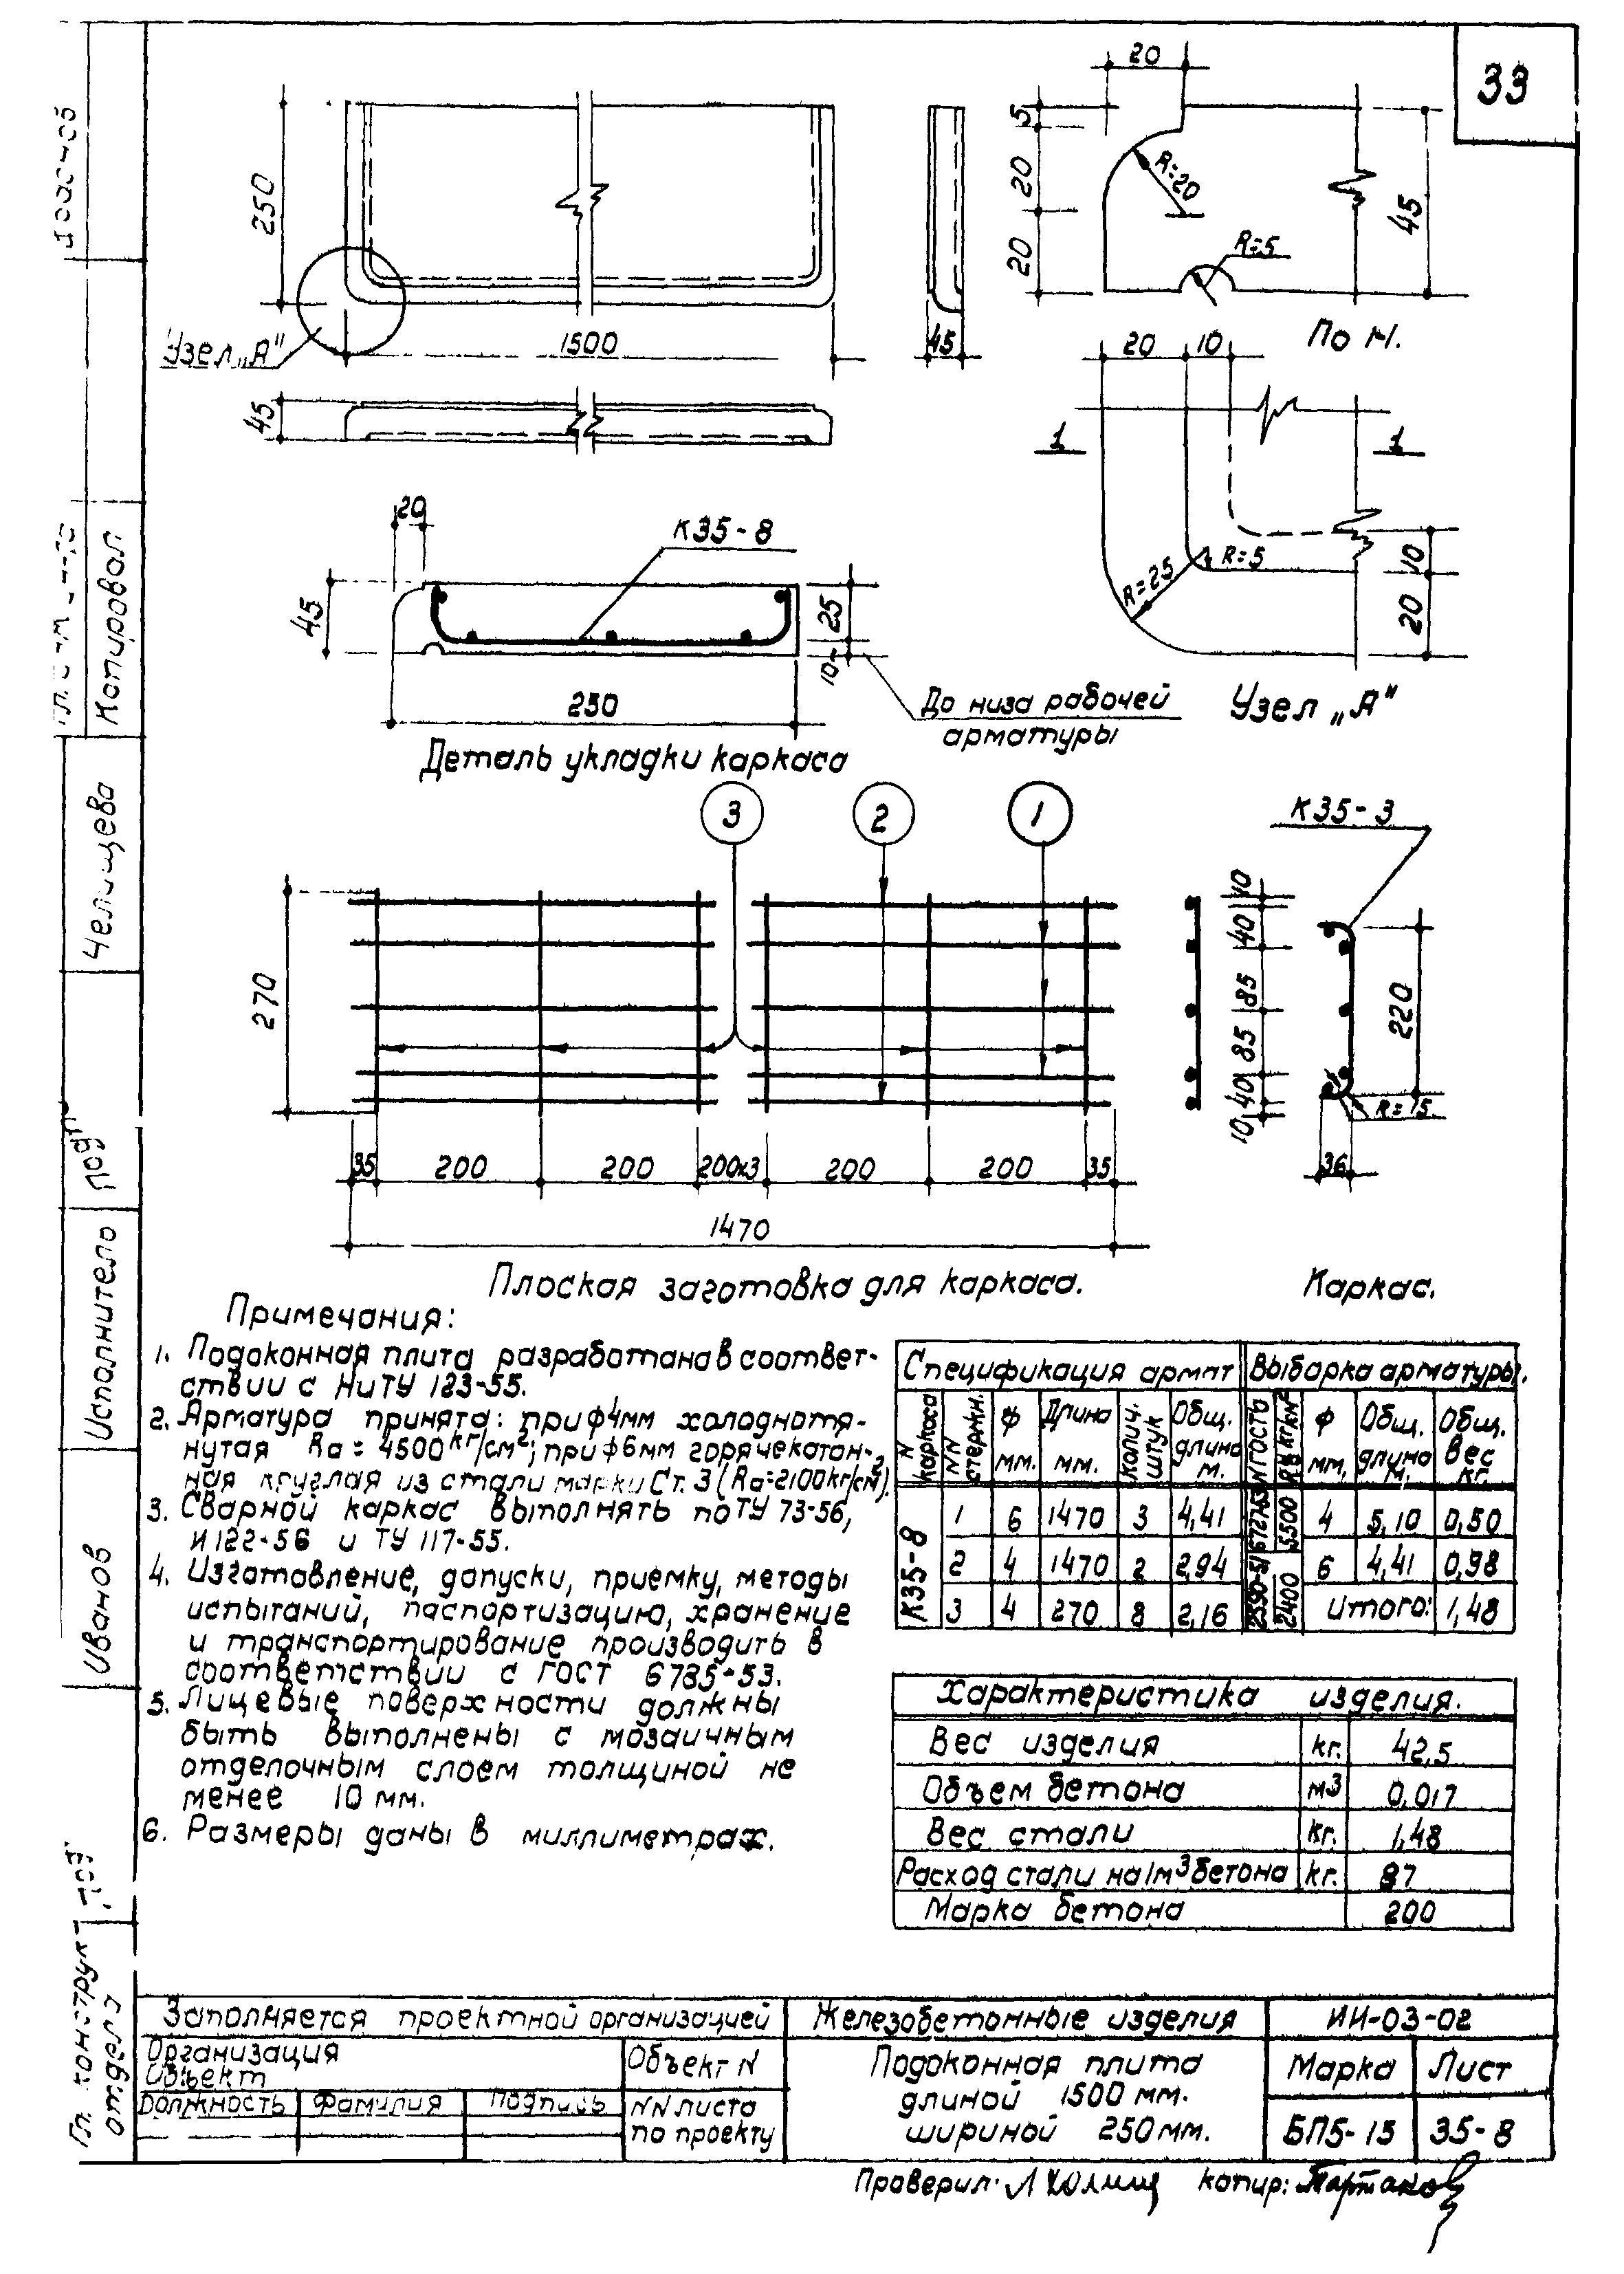 33
20
250
5
20
20
R=20
R=5
45
Узел „А"
1500
45
По 1-1.
45
20 10
1 1
20
К35-8
45
25
10
250
R=25
R=5
10
20
До низа рабочей
арматуры
Узел „А"
Деталь укладки каркаса
3 2 1
К35-3
270
10
40
85
85
40
10
220
R=15
36
35 200 200 200х3 200 200 35
1470
Плоская заготовка для каркаса.
Каркас.
Примечания:
1. Подоконная плита разработана в соответ-
ствии с НиТУ 123-55.
2. Арматура принята: при ф4мм холоднотя-
нутая Rа = 4500 кг/см²; при ф6мм горячекатан-
ная круглая из стали марки Ст. 3 (Rа=2100кг/см²).
3. Сварной каркас выполнять по ТУ 73-56,
И 122-56 и ТУ 117-55.
4. Изготовление, допуски, приемку, методы
испытаний, паспортизацию, хранение
и транспортирование производить в
соответствии с ГОСТ 6785-53.
5. Лицевые поверхности должны
быть выполнены с мозаичным
отделочным слоем толщиной не
менее 10 мм.
6. Размеры даны в миллиметрах.
Спецификация армат Выборка арматуры.
N каркаса NN стержн. ф мм. Длина мм. Колич. штук Общ. длина м. N ГОСТЬ ф мм. Общ. длина м. Общ. вес кг.
К35-8
1 6 1470 3 4,41 5500 4 5,10 0,50
2 4 1470 2 2,94 2590-51 2400 6 4,41 0,98
3 4 270 8 2,16 Итого: 1,48
Характеристика изделия.
Вес изделия кг. 42,5
Объем бетона м3 0,017
Вес стали кг. 1,48
Расход стали на 1м3 бетона кг. 87
Марка бетона 200
Заполняется проектной организацией
Организация
Объект
Объект N
Должность Фамилия Подпись
NN листа
по проекту
Железобетонные изделия
Подоконная плита
длиной 1500 мм.
шириной 250мм.
ИИ-03-02
Марка Лист
БП5-15 35-8
Проверил: Копир:
Копировал
Челищева
Исполнитель
Иванов
Гл. конструкт
отдела